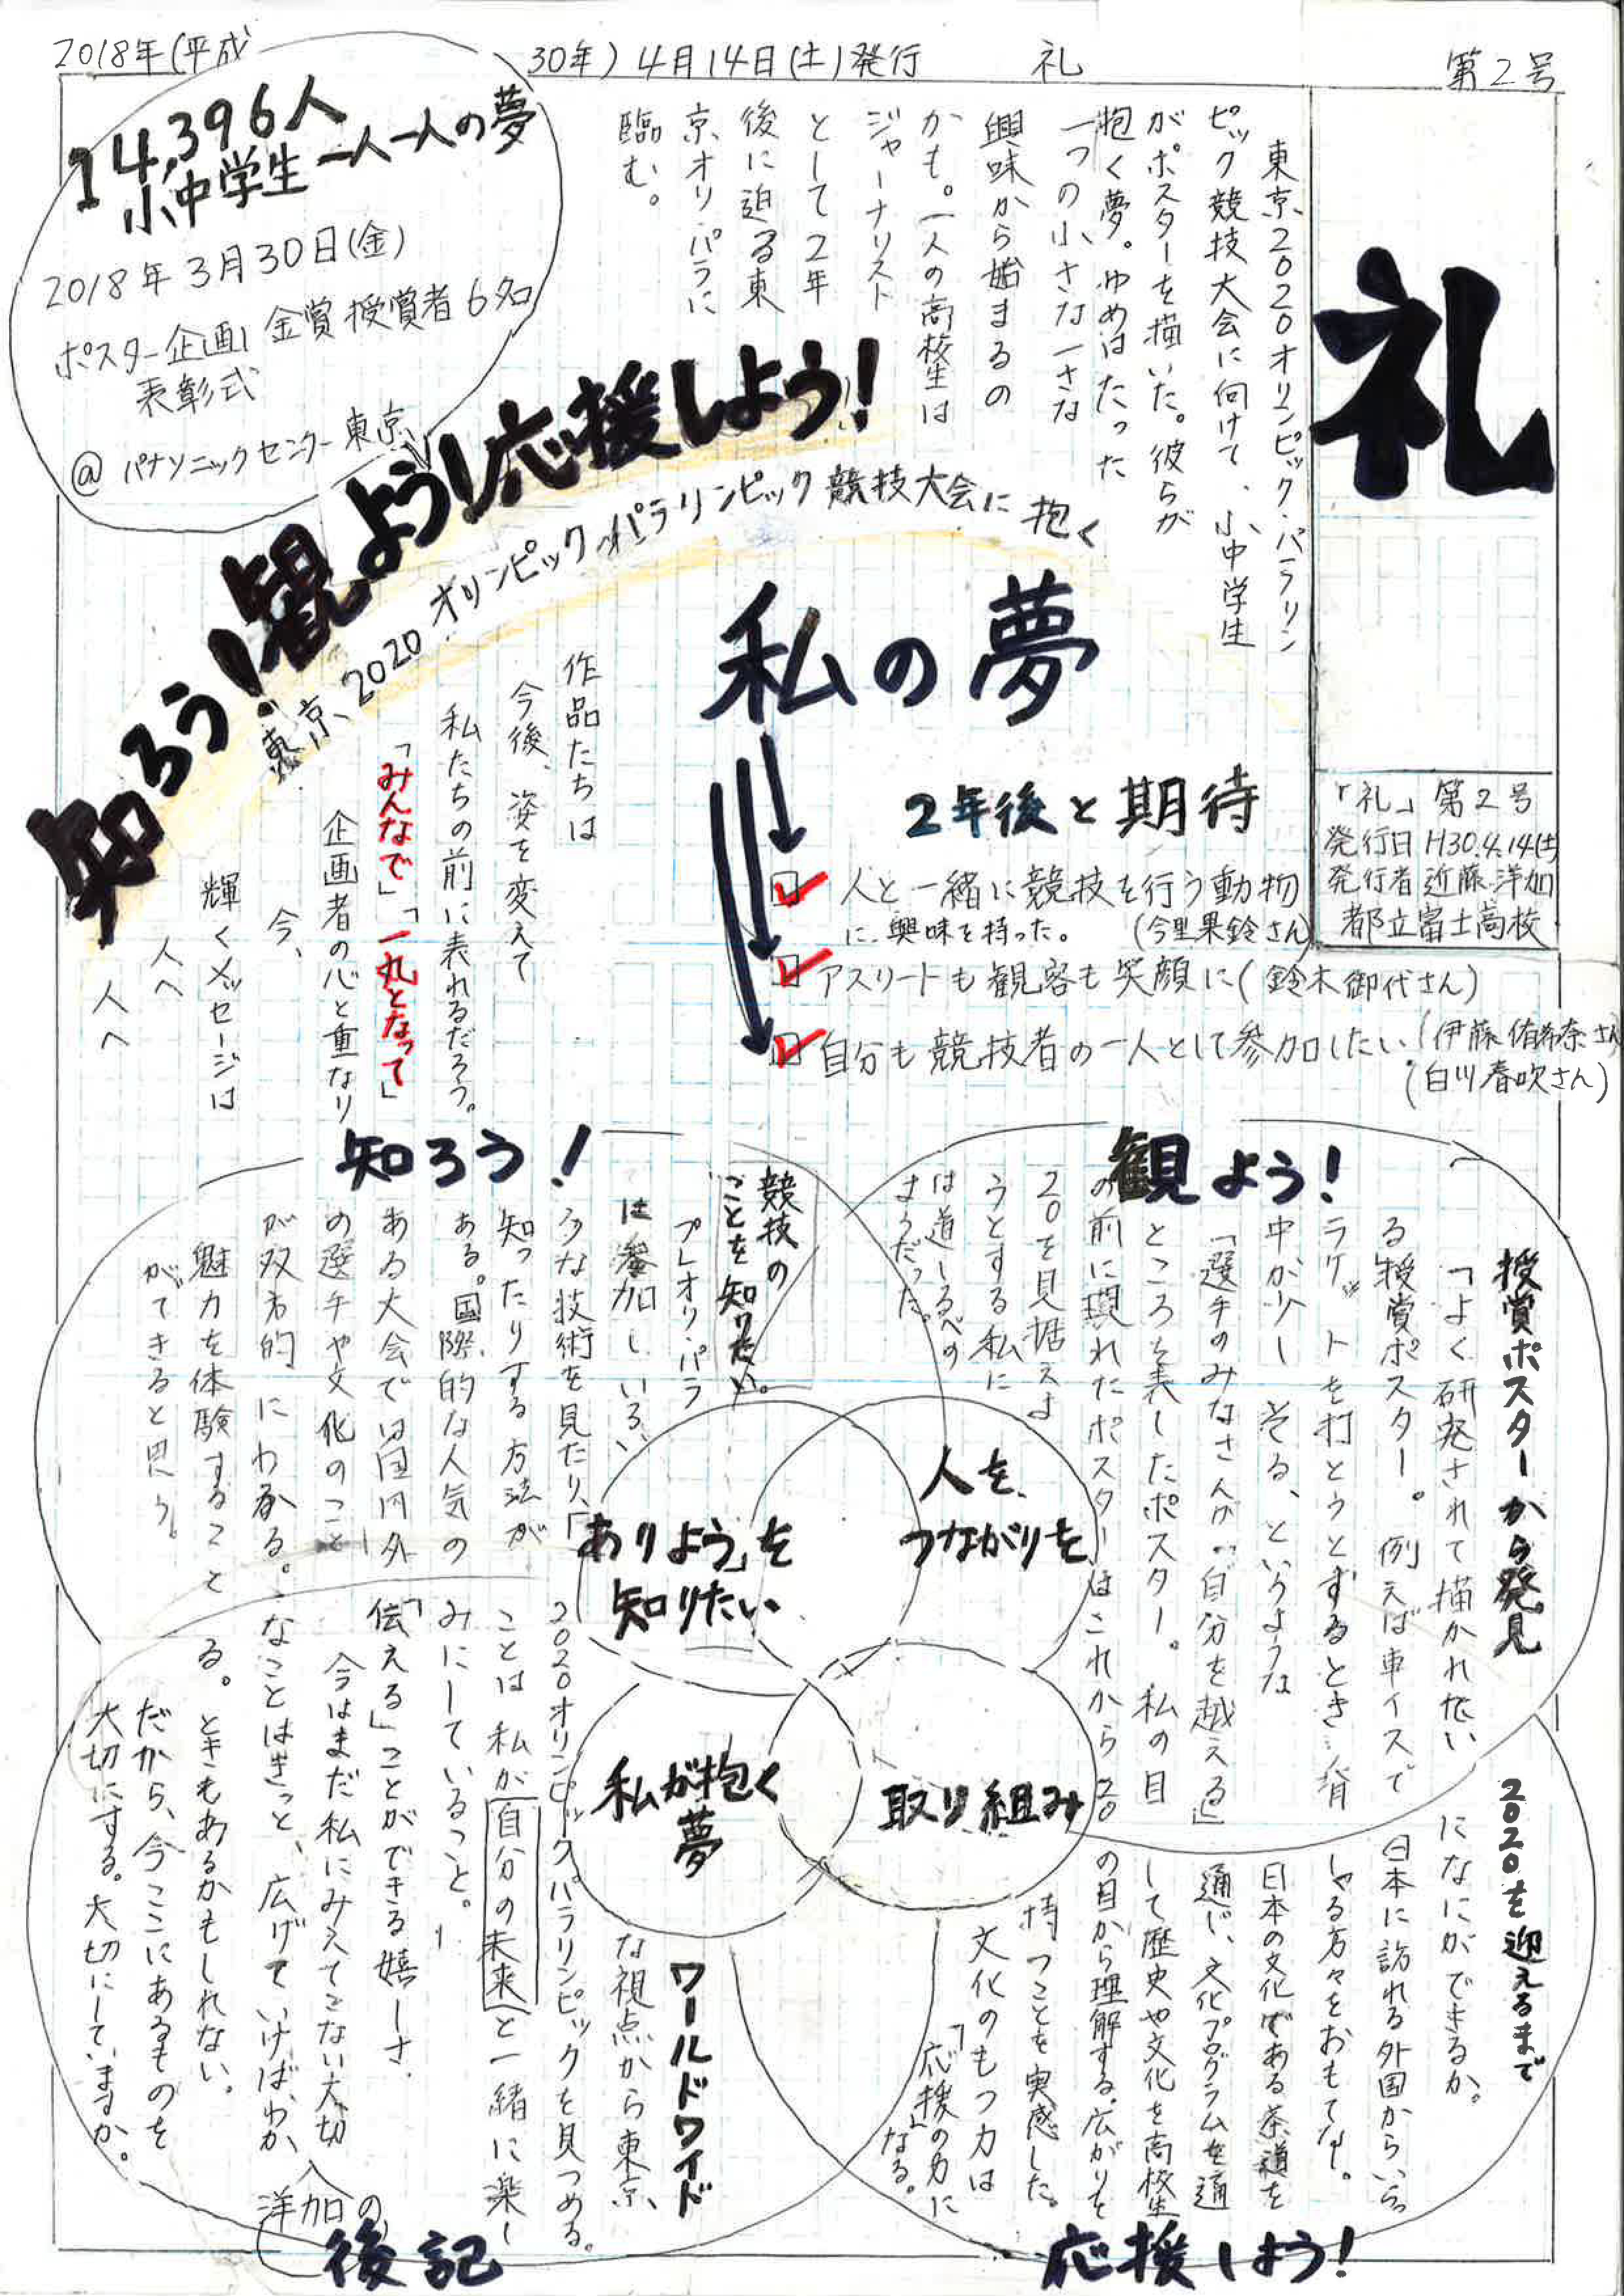 2018年(平成30年)4月14日(土)発行
礼
第2号
礼
「礼」第2号
発行日 H30.4.14(土)
発行者 近藤洋加
都立富士高校
東京2020オリンピック・パラリン
ピック競技大会に向けて、小中学生
がポスターを描いた。彼らが
抱く夢。ゆめはたった
一つの小さな一さな
興味から始まるの
かも。一人の高校生は
ジャーナリスト
として2年
後に迫る東
京オリ・パラに
臨む。
14,396人
小中学生一人一人の夢
2018年3月30日(金)
ポスター企画 金賞授賞者6名
表彰式
@パナソニックセンター東京
知ろう!観よう!応援しよう!
東京2020オリンピック・パラリンピック競技大会に抱く
私の夢
2年後と期待
人と一緒に競技を行う動物
に興味を持った。(今里果鈴さん)
アスリートも観客も笑顔に(鈴木御代さん)
自分も競技者の一人として参加したい(伊藤侑希奈さん)
(白川春吹さん)
作品たちは
今後、姿を変えて
私たちの前に表れるだろう。
「みんなで」「一丸となって」
企画者の心と重なり
今、
輝くメッセージは
人へ
人へ
観よう!
授賞ポスターから発見
「よく研究されて描かれたい
る授賞ポスター。例えば車イスで
ラケットを打とうとするとき…背
中が少しそる、というような
「選手のみなさんが“自分を越える」
ところを表したポスター。私の目
の前に現れたポスターはこれから20
20を見据えよ
うとする私に
は道しるべの
ようだった。
知ろう!
競技の
ことを知りたい。
プレオリ・パラ
は参加し、いろい
ろな技術を見たり、
知ったりする方法が
ある。国際的な人気の
ある大会では国内外
の選手や文化のこと
が双方的にわかる。
魅力を体験すること
ができると思う。
「ありよう」を
知りたい
人を、
つながりを
私が抱く
夢
取り組み
応援しよう!
2020を迎えるまで
になにができるか。
日本に訪れる外国からいらっ
しゃる方々をおもてなし。
日本の文化である茶道を
通じ、文化プログラムを通
して歴史や文化を高校生
の目から理解する。広がりを
持つことを実感した。
文化のもつ力は
「応援」の力に
なる。
ワールドワイド
な視点から東京
2020オリンピックパラリンピックを見つめる。
ことは私が自分の未来と一緒に楽し
みにしていること。
「伝える」ことができる嬉しさ。
今はまだ私にみえてこない大切
なことはきっと、広げていけば、わか
る。ときもあるかもしれない。
だから、今ここにあるものを
大切にする。大切にしていますか。
洋加の
後記